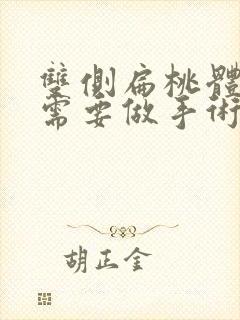 雙側扁桃體
需要做手術
胡正金